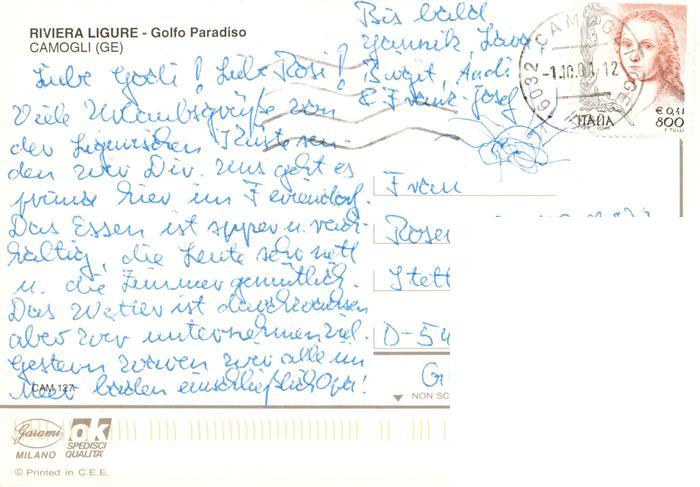 RIVIERA LIGURE - Golfo Paradiso
CAMOGLI (GE)
Liebe Godi! Liebe Rosi!
Viele Urlaubsgrüße von
der Ligurischen Küste sen-
den wir Dir. Uns geht es
prima hier im Feriendorf.
Das Essen ist super u. reich-
haltig, die Leute sehr nett
u. die Zimmer gemütlich.
Das Wetter ist durchwachsen
aber wir unternehmen viel.
Gestern waren wir alle im
Meer baden einschließlich Opa!
Bis bald
Yannik, Lara,
Birgit, Andi
& Franz-Josef
CAMOGLI
-1.10.01.12
ITALIA
€ 0,41
800
Frau
Rosen
Stett
D-54
G
CAM 127
NON SC
Garami
MILANO
ok
SPEDISCI
QUALITA'
© Printed in C.E.E.